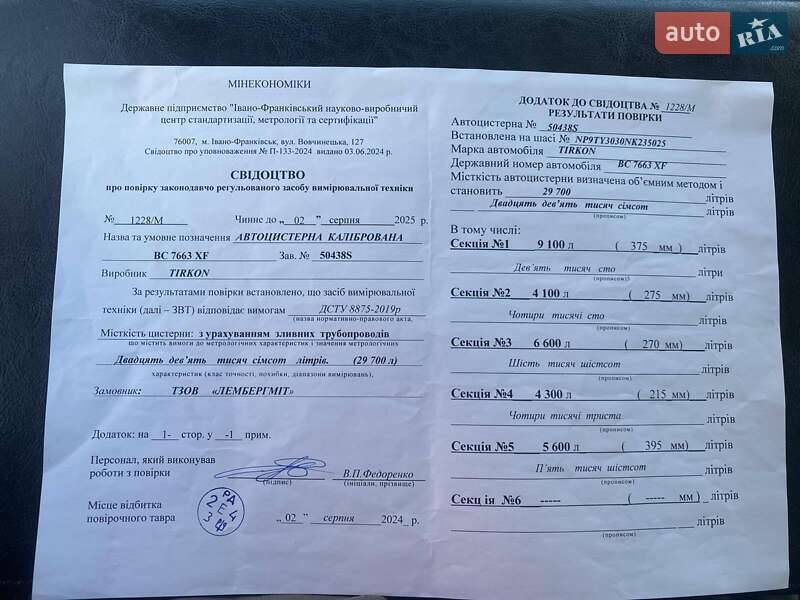 auto RIA .com
МІНЕКОНОМІКИ
Державне підприємство "Івано-Франківський науково-виробничий
центр стандартизації, метрології та сертифікації"
76007, м. Івано-Франківськ, вул. Вовчинецька, 127
Свідоцтво про уповноваження № П-133-2024 видано 03.06.2024 р.
СВІДОЦТВО
про повірку законодавчо регульованого засобу вимірювальної техніки
№ 1228/М Чинне до „ 02 ” серпня 2025 р.
Назва та умовне позначення АВТОЦИСТЕРНА КАЛІБРОВАНА
ВС 7663 XF Зав. № 50438S
Виробник TIRKON
За результатами повірки встановлено, що засіб вимірювальної
техніки (далі – ЗВТ) відповідає вимогам ДСТУ 8875-2019р
(назва нормативно-правового акта,
Місткість цистерни: з урахуванням зливних трубопроводів
що містить вимоги до метрологічних характеристик і значення метрологічних
Двадцять дев’ять тисяч сімсот літрів. (29 700 л)
характеристик (клас точності, похибки, діапазони вимірювань),
Замовник: ТЗОВ «ЛЕМБЕРГМІТ»
Додаток: на 1- стор. у -1 прим.
Персонал, який виконував
роботи з повірки В.П.Федоренко
(підпис) (ініціали, прізвище)
Місце відбитка
повірочного тавра „ 02 ” серпня 2024 р.
ДОДАТОК ДО СВІДОЦТВА № 1228/М
РЕЗУЛЬТАТИ ПОВІРКИ
Автоцистерна № 50438S
Встановлена на шасі № NP9TY3030NK235025
Марка автомобіля TIRKON
Державний номер автомобіля ВС 7663 XF
Місткість автоцистерни визначена об’ємним методом і
становить 29 700 літрів
Двадцять дев’ять тисяч сімсот літрів
(прописом)
В тому числі:
Секція №1 9 100 л ( 375 мм ) літрів
Дев’ять тисяч сто літри
(прописом)5
Секція №2 4 100 л ( 275 мм) літрів
Чотири тисячі сто літрів
(прописом)
Секція №3 6 600 л ( 270 мм) літрів
Шість тисяч шістсот літрів
(прописом)
Секція №4 4 300 л ( 215 мм) літрів
Чотири тисячі триста літрів
(прописом)
Секція №5 5 600 л ( 395 мм) літрів
П’ять тисяч шістсот літрів
(прописом)
Секц ія №6 ----- ( ----- мм ) літрів
літрів
(прописом)